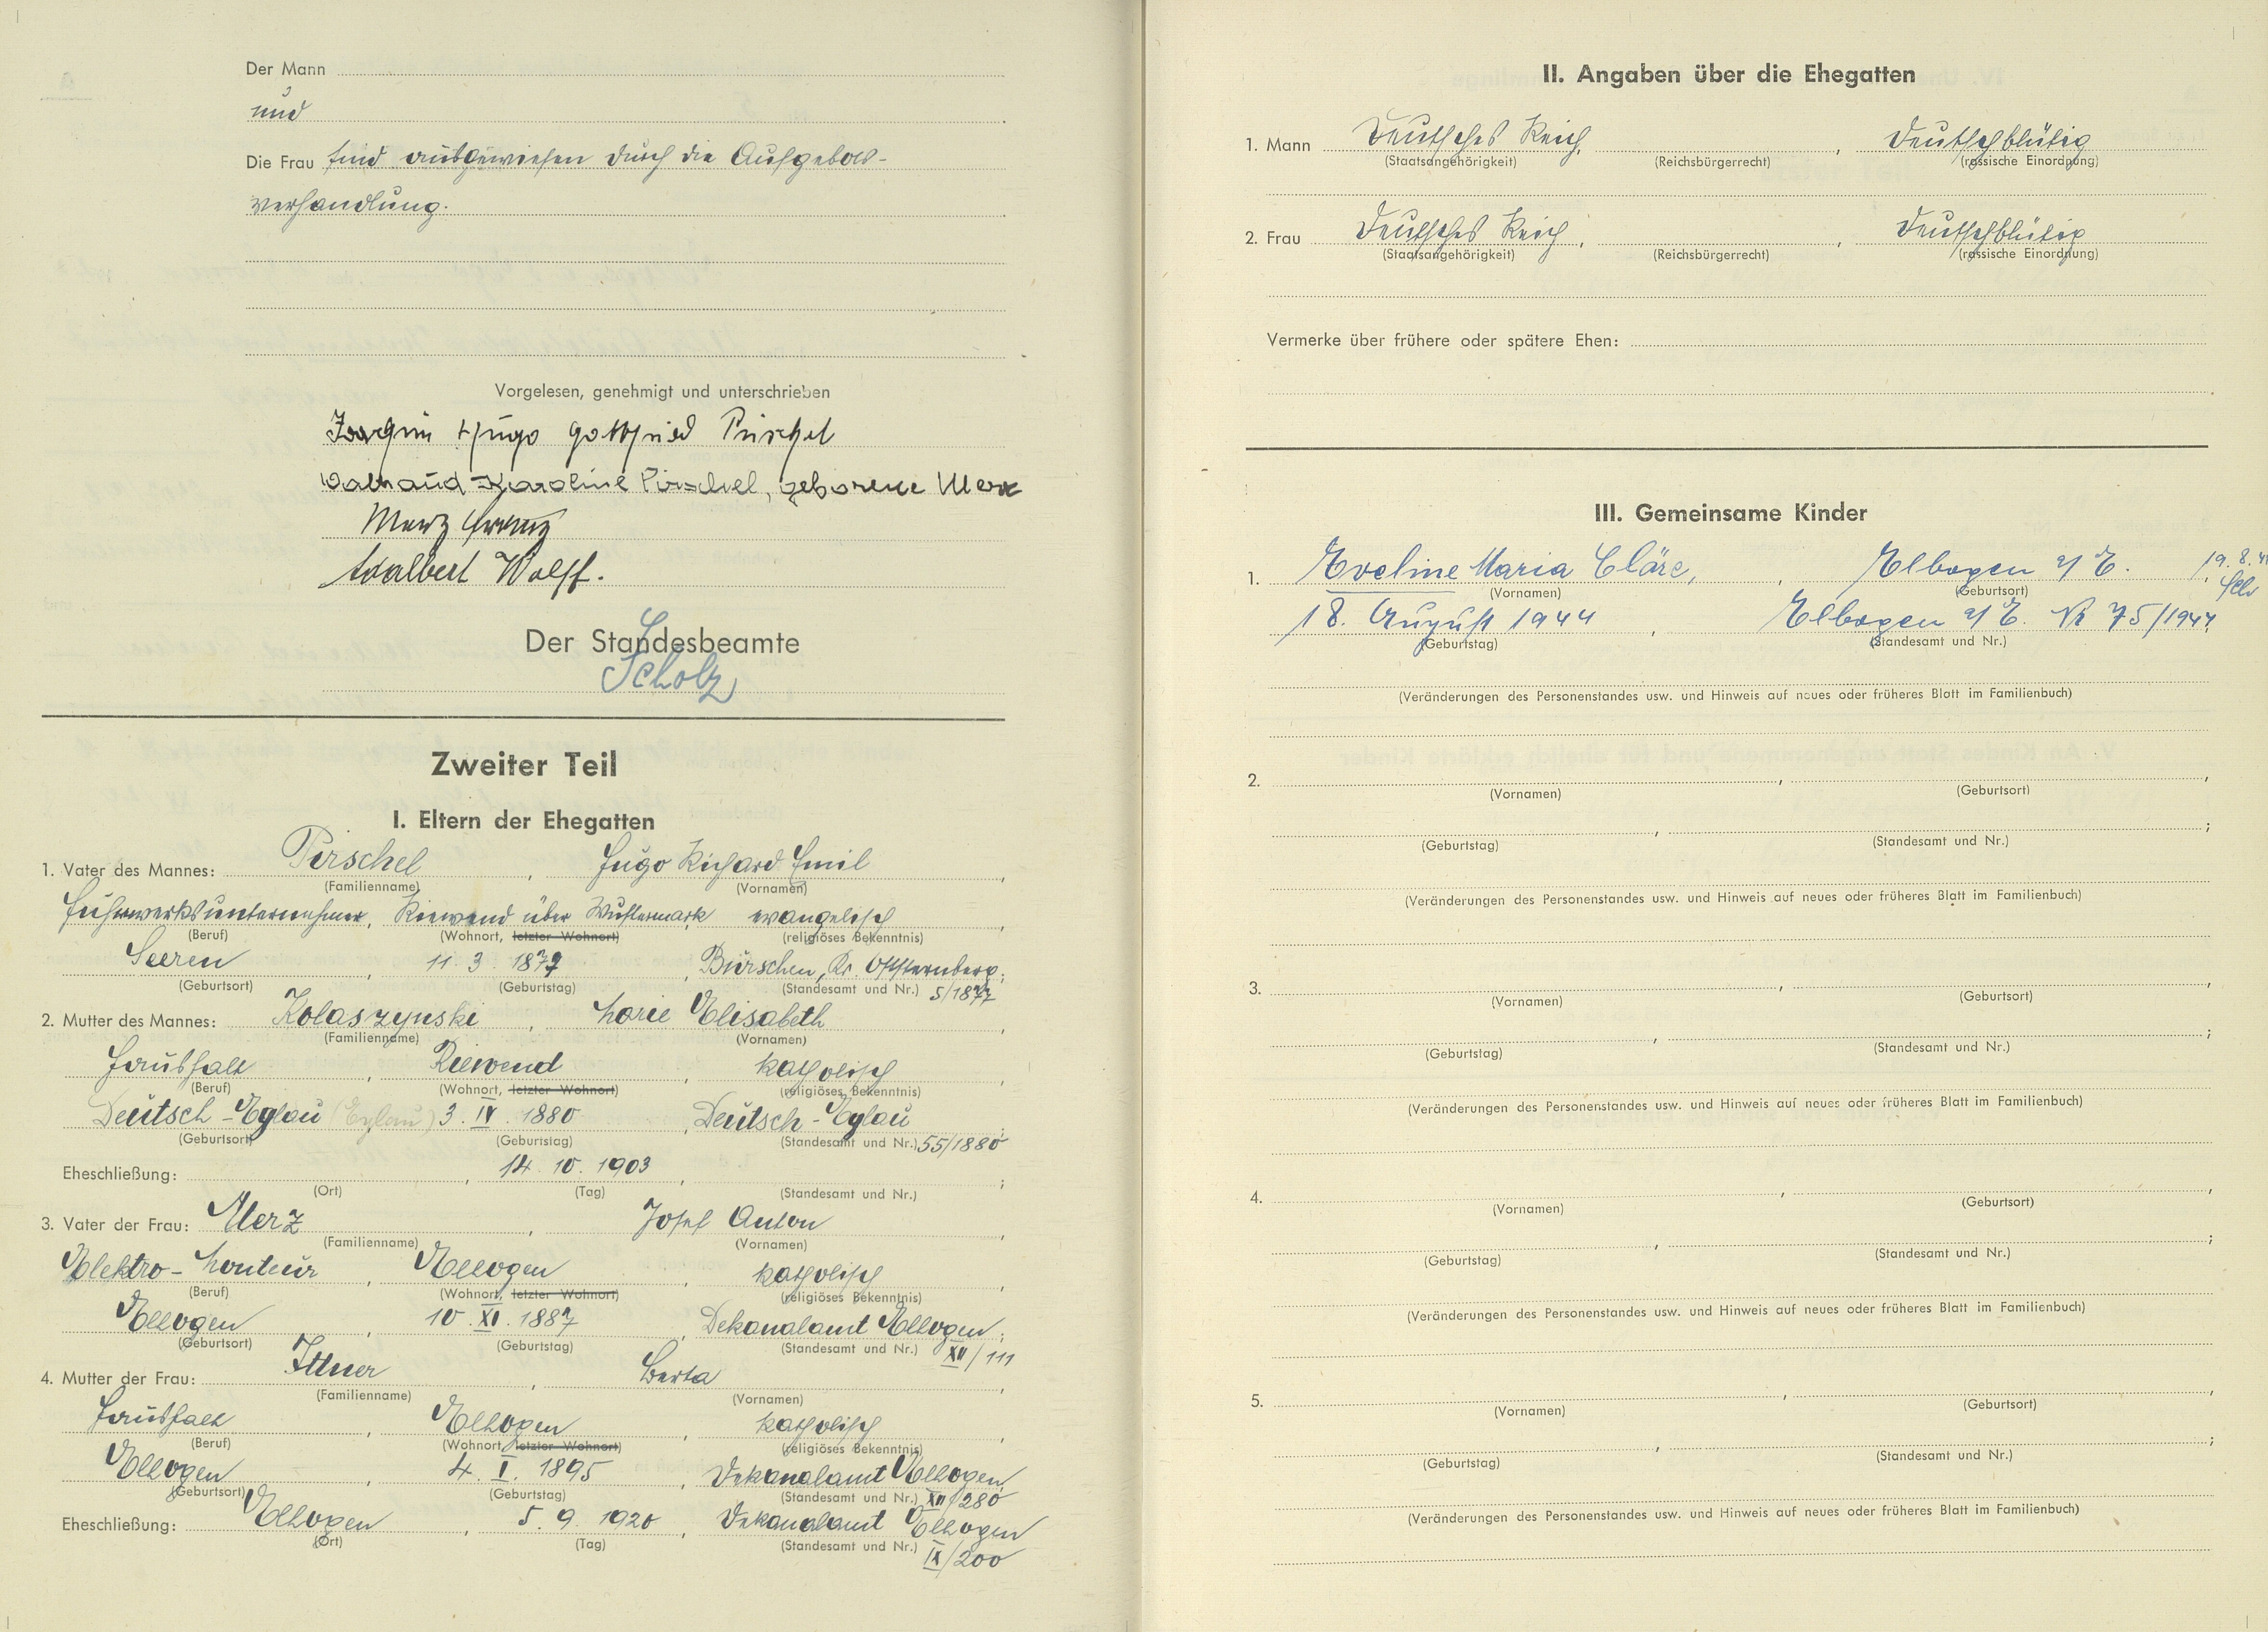 Der Mann
und
Die Frau sind ausgewiesen durch die Aufgebots-
verhandlung.
Vorgelesen, genehmigt und unterschrieben
Joachim Hugo Gottfried Pirschel
Waltraud Karoline Pirschel, geborene Merz
Merz Franz
Adalbert Wolff.
Der Standesbeamte
Scholz
Zweiter Teil
I. Eltern der Ehegatten
1. Vater des Mannes: Pirschel, Hugo Richard Emil,
(Familienname) (Vornamen)
Fuhrwerksunternehmer, Riewend über Wustermark, evangelisch,
(Beruf) (Wohnort, letzter Wohnort) (religiöses Bekenntnis)
Seeren, 11. 3. 1877, Burschen, Kr. Oststernberg;
(Geburtsort) (Geburtstag) (Standesamt und Nr.) 5/1877
2. Mutter des Mannes: Kolaszynski, Marie Elisabeth,
(Familienname) (Vornamen)
Haushalt, Riewend, katholisch,
(Beruf) (Wohnort, letzter Wohnort) (religiöses Bekenntnis)
Deutsch-Eylau (Eylau) 3. IV. 1880, Deutsch-Eylau;
(Geburtsort) (Geburtstag) (Standesamt und Nr.) 55/1880
Eheschließung: , 14. 10. 1903, ;
(Ort) (Tag) (Standesamt und Nr.)
3. Vater der Frau: Merz, Josef Anton,
(Familienname) (Vornamen)
Elektro-Monteur, Elbogen, katholisch,
(Beruf) (Wohnort, letzter Wohnort) (religiöses Bekenntnis)
Elbogen, 10. XI. 1887, Dekanalamt Elbogen;
(Geburtsort) (Geburtstag) (Standesamt und Nr.) XII/111
4. Mutter der Frau: Ittner, Berta,
(Familienname) (Vornamen)
Haushalt, Elbogen, katholisch,
(Beruf) (Wohnort, letzter Wohnort) (religiöses Bekenntnis)
Elbogen, 4. I. 1895, Dekanalamt Elbogen;
(Geburtsort) (Geburtstag) (Standesamt und Nr.) XII/280
Eheschließung: Elbogen, 5. 9. 1920, Dekanalamt Elbogen
(Ort) (Tag) (Standesamt und Nr.) IX/200
II. Angaben über die Ehegatten
1. Mann Deutsches Reich, , Deutschblütig
(Staatsangehörigkeit) (Reichsbürgerrecht) (rassische Einordnung)
2. Frau Deutsches Reich, , Deutschblütig
(Staatsangehörigkeit) (Reichsbürgerrecht) (rassische Einordnung)
Vermerke über frühere oder spätere Ehen:
III. Gemeinsame Kinder
1. Eveline Maria Cläre, , Elbogen a/E. , 19. 8.
(Vornamen) (Geburtsort)
18. August 1944, Elbogen a/E. Nr 75/1944;
(Geburtstag) (Standesamt und Nr.)
(Veränderungen des Personenstandes usw. und Hinweis auf neues oder früheres Blatt im Familienbuch)
2. , ,
(Vornamen) (Geburtsort)
, ;
(Geburtstag) (Standesamt und Nr.)
(Veränderungen des Personenstandes usw. und Hinweis auf neues oder früheres Blatt im Familienbuch)
3. , ,
(Vornamen) (Geburtsort)
, ;
(Geburtstag) (Standesamt und Nr.)
(Veränderungen des Personenstandes usw. und Hinweis auf neues oder früheres Blatt im Familienbuch)
4. , ,
(Vornamen) (Geburtsort)
, ;
(Geburtstag) (Standesamt und Nr.)
(Veränderungen des Personenstandes usw. und Hinweis auf neues oder früheres Blatt im Familienbuch)
5. , ,
(Vornamen) (Geburtsort)
, ;
(Geburtstag) (Standesamt und Nr.)
(Veränderungen des Personenstandes usw. und Hinweis auf neues oder früheres Blatt im Familienbuch)